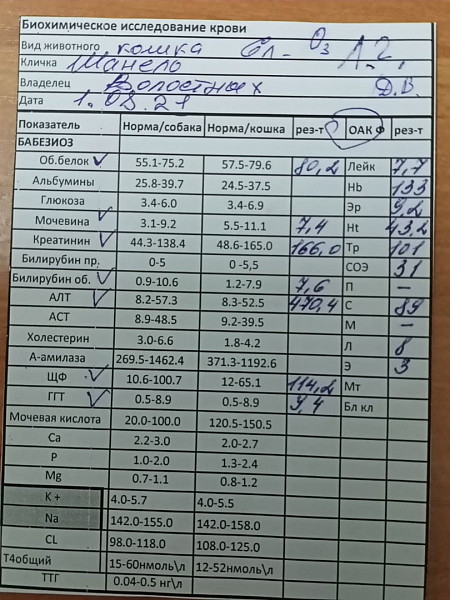 Биохимическое исследование крови
Вид животного кошка
Кличка Шанель
Владелец Волостных Д.В.
Дата 1.08.21
Показатель Норма/собака Норма/кошка рез-т ОАК Ф рез-т
БАБЕЗИОЗ
Об.белок 55.1-75.2 57.5-79.6 80,2 Лейк 7,7
Альбумины 25.8-39.7 24.5-37.5 Hb 133
Глюкоза 3.4-6.0 3.4-6.9 Эр 9,2
Мочевина 3.1-9.2 5.5-11.1 7,4 Ht 43,2
Креатинин 44.3-138.4 48.6-165.0 166,0 Тр 101
Билирубин пр. 0-5 0 -5,5 СОЭ 31
Билирубин об. 0.9-10.6 1.2-7.9 7,6 П –
АЛТ 8.2-57.3 8.3-52.5 470,4 С 89
АСТ 8.9-48.5 9.2-39.5 М –
Холестерин 3.0-6.6 1.8-4.2 Л 8
А-амилаза 269.5-1462.4 371.3-1192.6 Э 3
ЩФ 10.6-100.7 12-65.1 114,2 Мт
ГГТ 0.5-8.9 0.5-8.9 9,4 Бл кл
Мочевая кислота 20.0-100.0 120.5-150.5
Ca 2.2-3.0 2.0-2.7
P 1.0-2.0 1.3-2.4
Mg 0.7-1.1 0.8-1.2
K + 4.0-5.7 4.0-5.5
Na 142.0-155.0 142.0-158.0
CL 98.0-118.0 108.0-125.0
Т4общий 15-60нмоль\л 12-52нмоль\л
ТТГ 0.04-0.5 нг\л